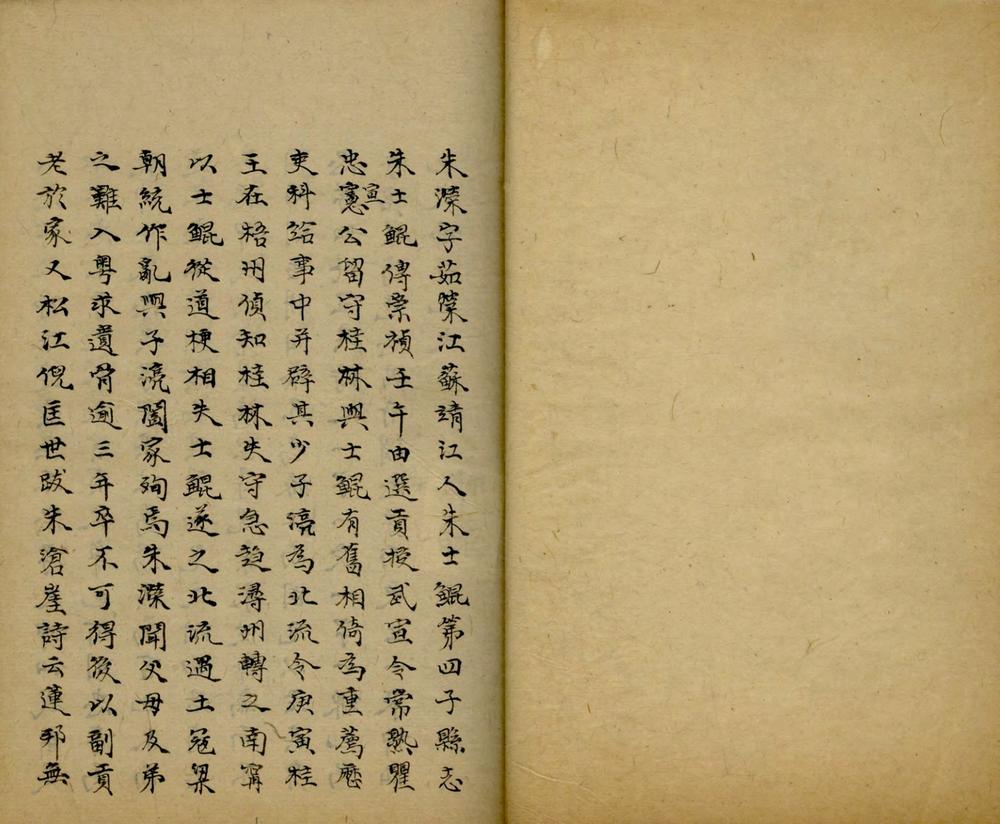 朱濚字茹濚江蘇靖江人朱士鲲第四子縣志
朱士鲲傳崇禎壬午由選貢授武宣令常熟瞿
忠宣公留守桂林與士鲲有舊相倚為重薦歷
吏科給事中并辟其少子湸為北流令庚寅桂
王在梧州偵知桂林失守急趋潯州轉之南甯
以士鲲從道梗相失士鲲遂之北流遇土冦梁
朝統作亂與子湸闔家殉焉朱濚聞父母及弟
之難入粤求遺骨逾三年卒不可得後以副貢
老於家又松江倪匡世跋朱滄崖詩云蓮邦無